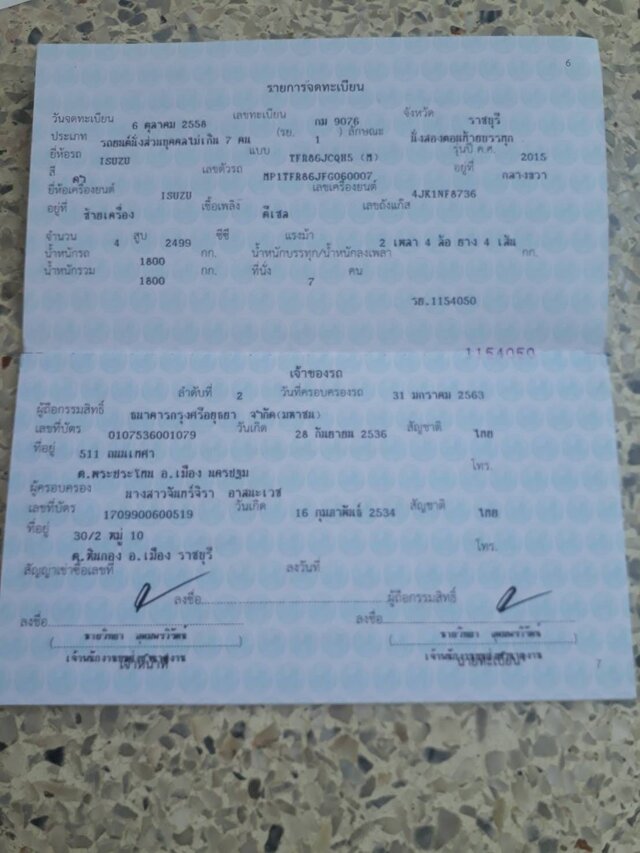 6
รายการจดทะเบียน
วันจดทะเบียน 6 ตุลาคม 2558 เลขทะเบียน กม 9076 จังหวัด ราชบุรี
ประเภท รถยนต์นั่งส่วนบุคคลไม่เกิน 7 คน (รย. 1 ) ลักษณะ นั่งสองตอนท้ายบรรทุก
ยี่ห้อรถ ISUZU แบบ TFR86JCQH5 (M) รุ่นปี ค.ศ. 2015
สี เลขตัวรถ MP1TFR86JFG060007 อยู่ที่ กลางขวา
ยี่ห้อเครื่องยนต์ ISUZU เลขเครื่องยนต์ 4JK1NF8736
อยู่ที่ ซ้ายเครื่อง เชื้อเพลิง ดีเซล เลขถังแก๊ส
จำนวน 4 สูบ 2499 ซีซี แรงม้า 2 เพลา 4 ล้อ ยาง 4 เส้น
น้ำหนักรถ 1800 กก. น้ำหนักบรรทุก/น้ำหนักลงเพลา กก.
น้ำหนักรวม 1800 กก. ที่นั่ง 7 คน
รย.1154050
1154050
เจ้าของรถ
ลำดับที่ 2 วันที่ครอบครองรถ 31 มกราคม 2563
ผู้ถือกรรมสิทธิ์ ธนาคารกรุงศรีอยุธยา จำกัด(มหาชน)
เลขที่บัตร 0107536001079 วันเกิด 28 กันยายน 2536 สัญชาติ ไทย
ที่อยู่ 511 ถนนเทศา โทร.
ต.พระประโทน อ.เมือง นครปฐม
ผู้ครอบครอง นางสาวจันทร์จิรา อาสนะเวช
เลขที่บัตร 1709900600519 วันเกิด 16 กุมภาพันธ์ 2534 สัญชาติ ไทย
ที่อยู่ 30/2 หมู่ 10 โทร.
ต.หินกอง อ.เมือง ราชบุรี
สัญญาเช่าซื้อเลขที่ ลงวันที่
ลงชื่อ ผู้ถือกรรมสิทธิ์
ลงชื่อ ลงชื่อ
เจ้าหน้าที่ นายทะเบียน
7